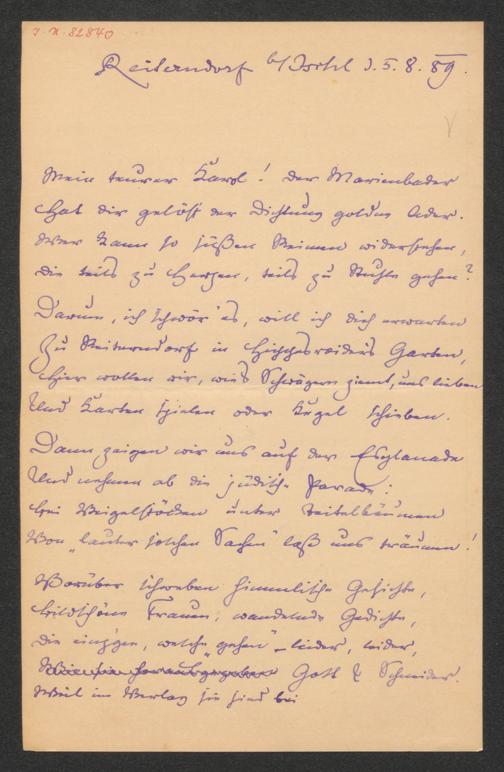 J. N. 82840
Reiterndorf b/Ischl d. 5. 8. 89.
Mein teurer Karol! Der Marienbader
Hat dir gelöst der Dichtung goldne Ader.
Wer kann so süßen Reimen widerstehen,
Die teils zu Herzen, teils zu Stuhle gehen?
Darum, ich schwör' es, will ich dich erwarten
Zu Reiterndorf in Garten,
Hier wollen wir, wie's Schwägern ziemt, uns lieben
Und Karten spielen oder Kugel schieben.
Dann zeigen wir uns auf der Esplanade
Und nehmen ab die jüdische Parade:
Bei Veigelstöcken unter Teitelbäumen
Von „lauter solchen Sachen" laß uns träumen!
Vorüber schweben himmlische Gesichte,
Bildschöne Frauen, wandelnde Gedichte,
Die einz'gen, welche „gehen" – leider, leider,
Wie sie herausgegeben Gott & Schneider.
Weil im Verlag sie sind bei